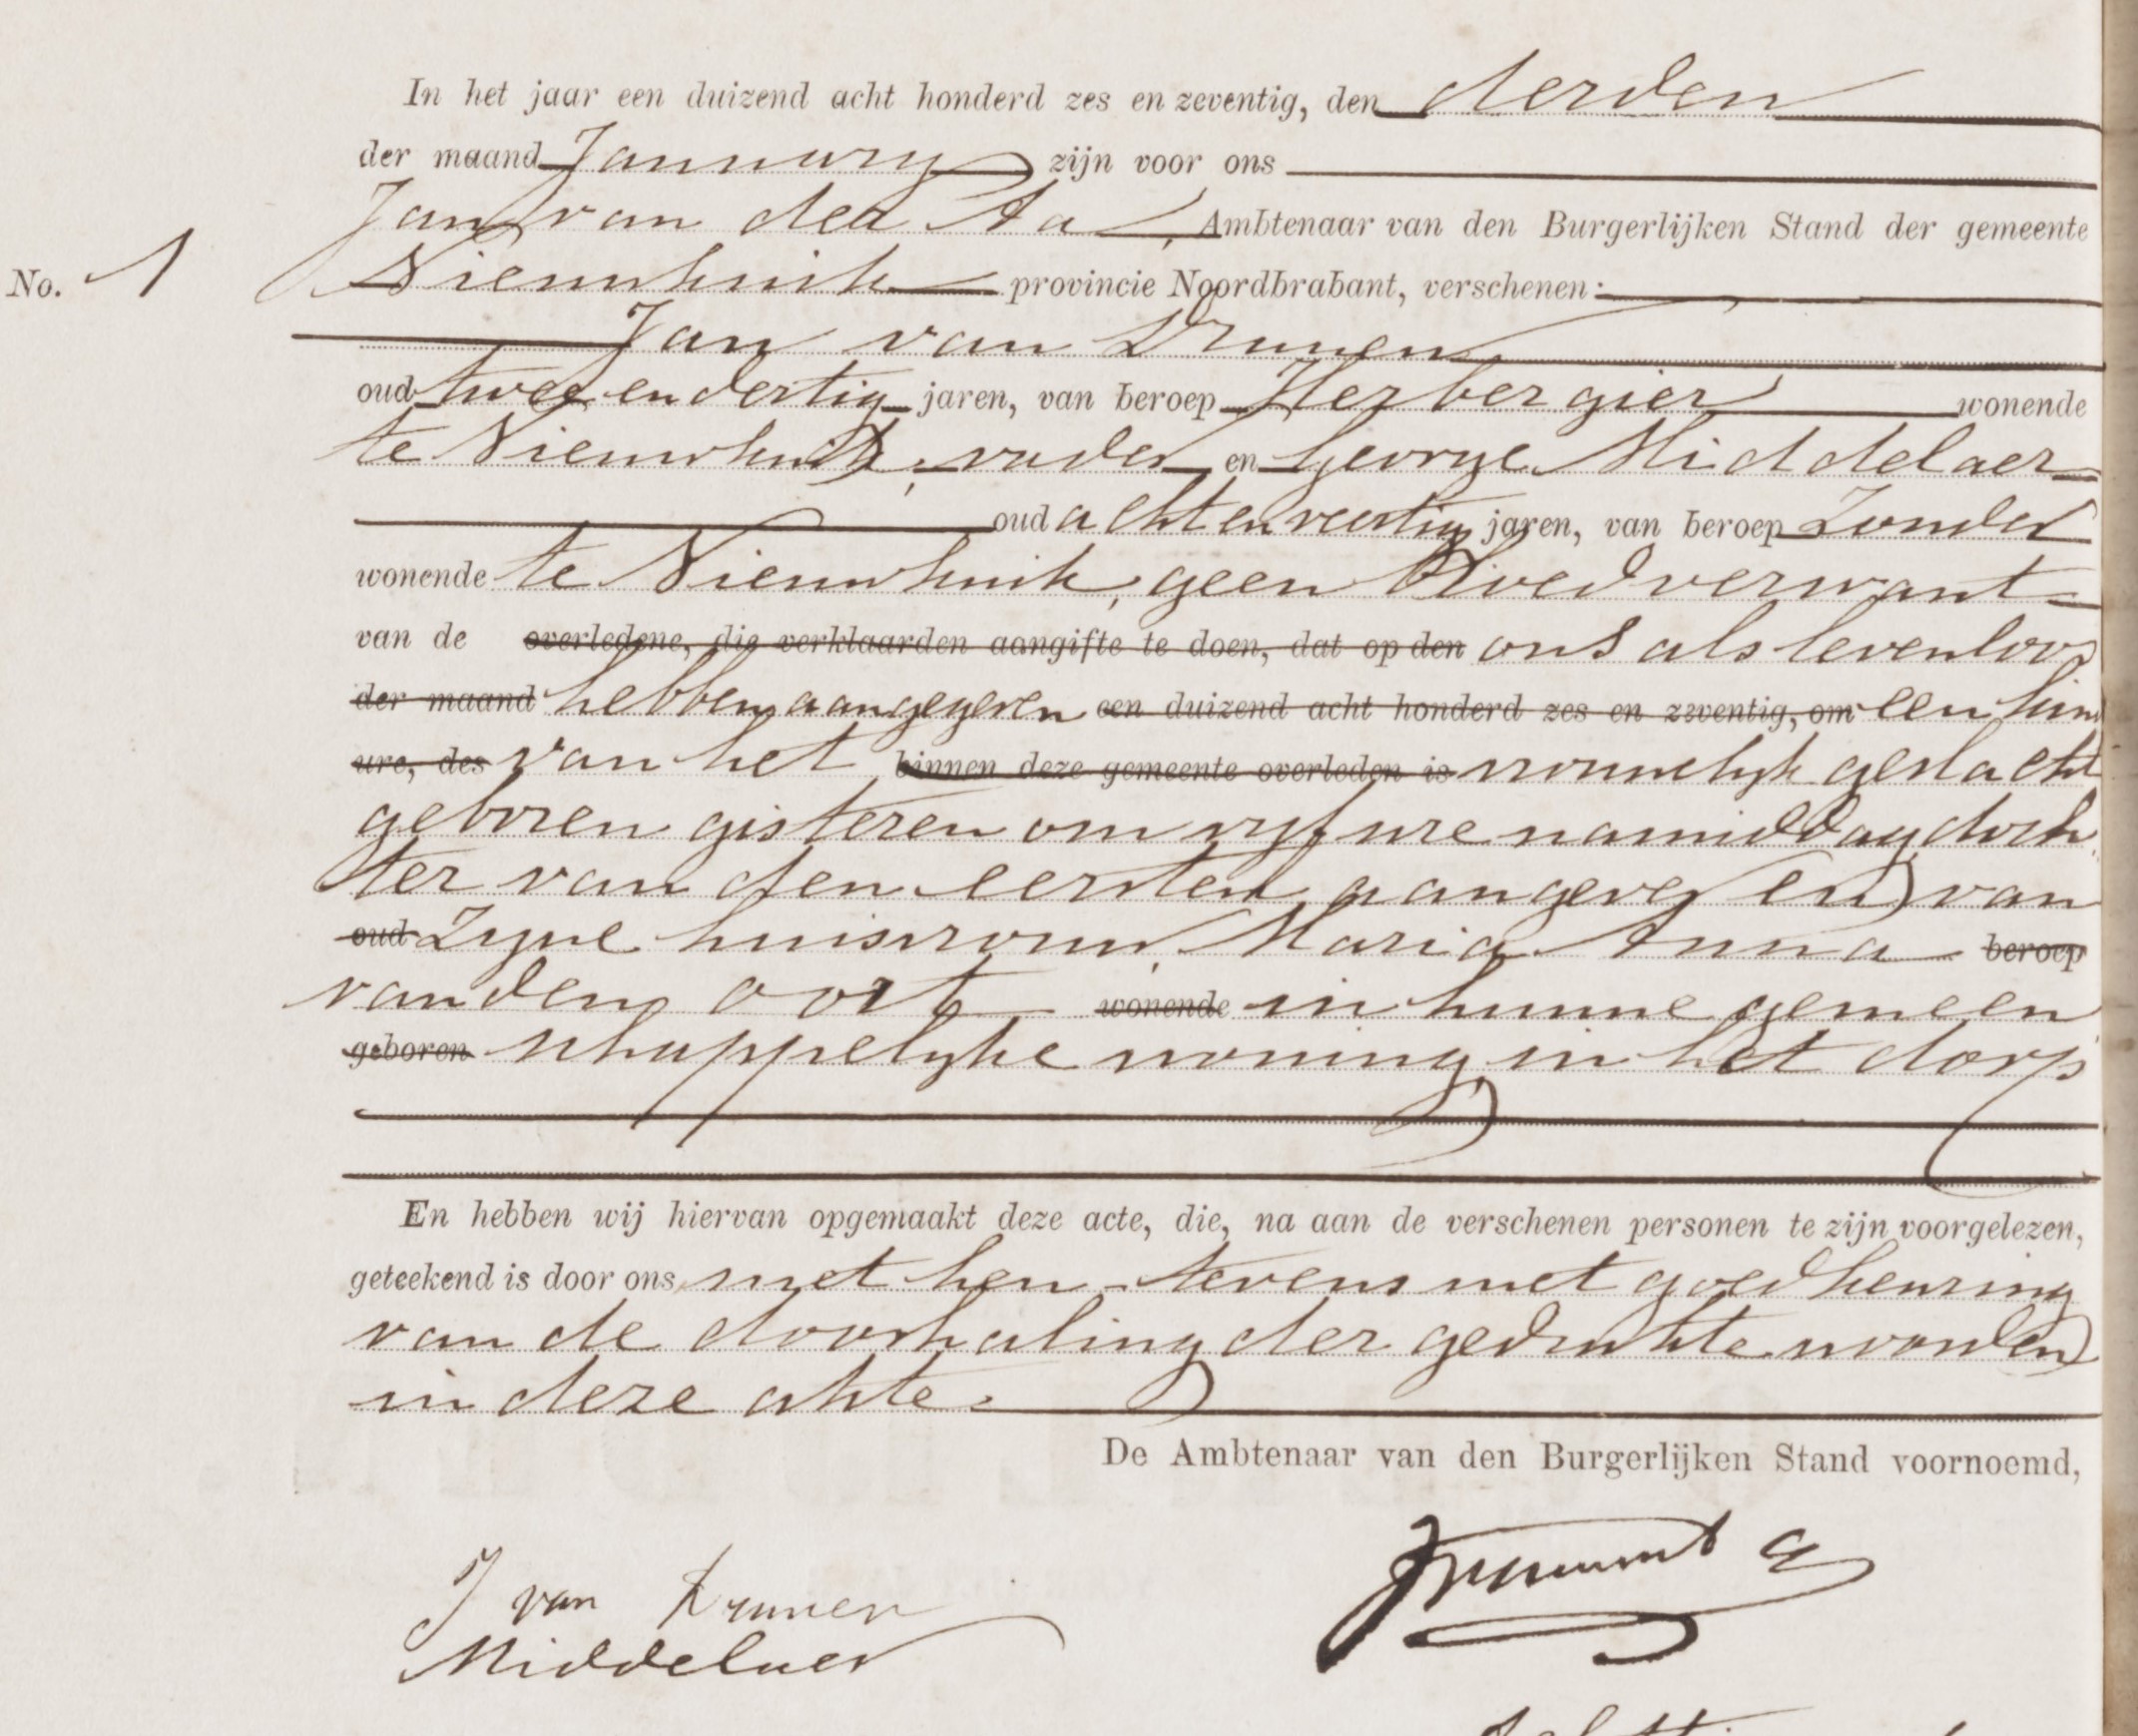 In het jaar een duizend acht honderd zes en zeventig, den derden
der maand January zijn voor ons
Jan van der Aa, Ambtenaar van den Burgerlijken Stand der gemeente
No. 1 Nieuwkuik provincie Noordbrabant, verschenen:
Jan van Drunen
oud twee en dertig jaren, van beroep Herbergier wonende
te Nieuwkuik, vader en George Middelaer
oud acht en veertig jaren, van beroep Zonder
wonende te Nieuwkuik, geen bloedverwant
van de overledene, die verklaarden aangifte te doen, dat op den ons als levenloos
der maand hebben aangegeven een duizend acht honderd zes en zeventig, om een kind
ure, des van het binnen deze gemeente overleden is vrouwelyk geslacht
geboren gisteren om vyf ure namiddag, doch
ter van den eersten aangever en van
oud Zyne huisvrouw, Maria Anna beroep
van den Oort wonende in hunne gemeen
geboren schappelyke woning in het dorp
En hebben wij hiervan opgemaakt deze acte, die, na aan de verschenen personen te zijn voorgelezen,
geteekend is door ons, met hen tevens met goedkeuring
van de doorhaling der gedrukte woorden
in deze akte.
De Ambtenaar van den Burgerlijken Stand voornoemd,
J van Drunen
Middelaer